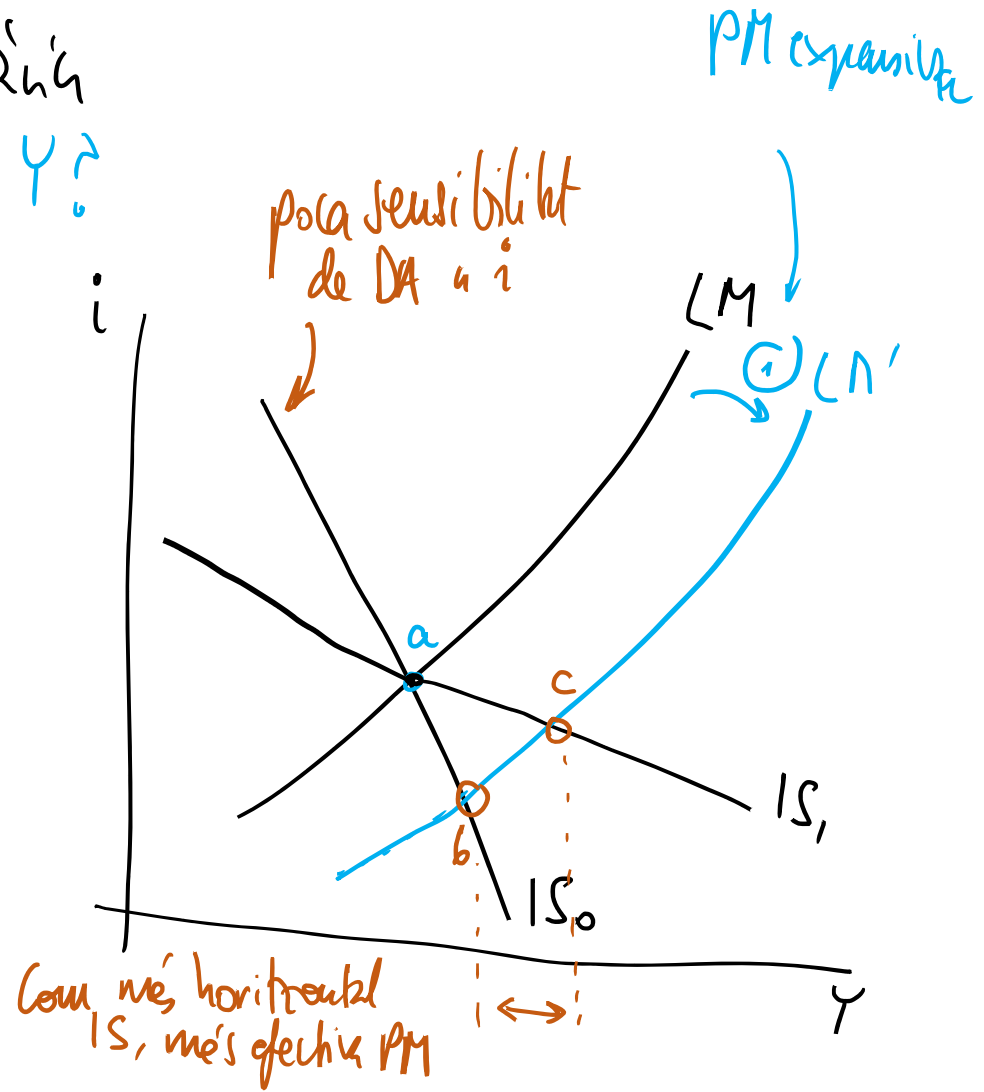 PM expansiva
Y?
poca sensibilitat
de DA a i
i
LM
1
LM'
a
c
b
IS₁
IS₀
Y
Com més horitzontal
IS, més efectiva PM